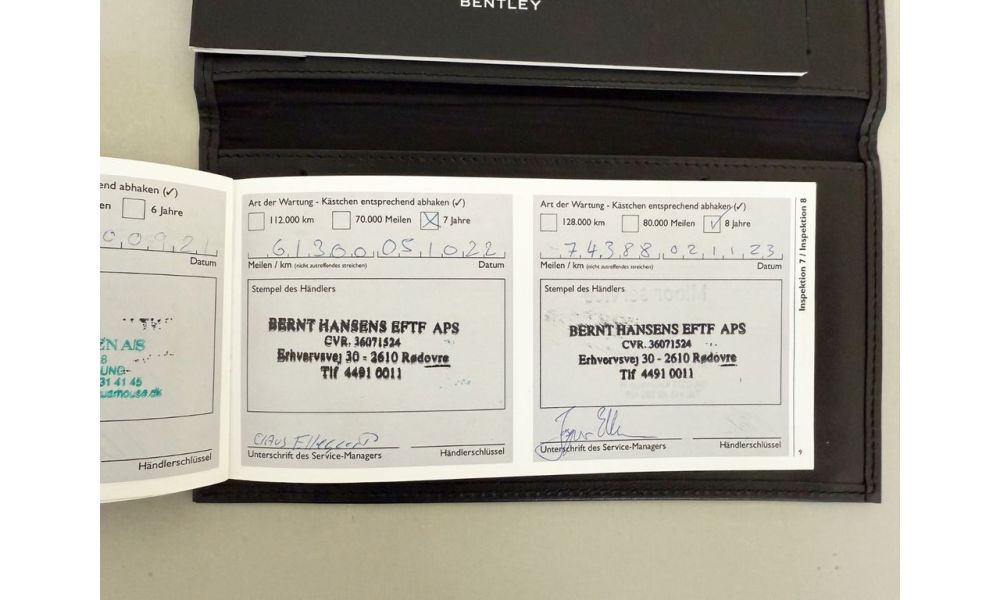 BENTLEY
end abhaken (✓)
en 6 Jahre
0,0,9,2,1
Datum
EN A/S
8
UNG-
31 41 45
Händlerschlüssel
Art der Wartung - Kästchen entsprechend abhaken (✓)
112.000 km 70.000 Meilen 7 Jahre
6,1,3,0,0 0,5,1,0,2,2
Meilen / km (nicht zutreffendes streichen) Datum
Stempel des Händlers
BERNT HANSENS EFTF APS
CVR. 36071524
Erhvervsvej 30 - 2610 Rødovre
Tlf 4491 0011
Claus
Unterschrift des Service-Managers Händlerschlüssel
Art der Wartung - Kästchen entsprechend abhaken (✓)
128.000 km 80.000 Meilen 8 Jahre
7,4,3,8,8 0,2,1,1,2,3
Meilen / km (nicht zutreffendes streichen) Datum
Stempel des Händlers
BERNT HANSENS EFTF APS
CVR. 36071524
Erhvervsvej 30 - 2610 Rødovre
Tlf 4491 0011
Unterschrift des Service-Managers Händlerschlüssel
Inspektion 7 / Inspektion 8
9